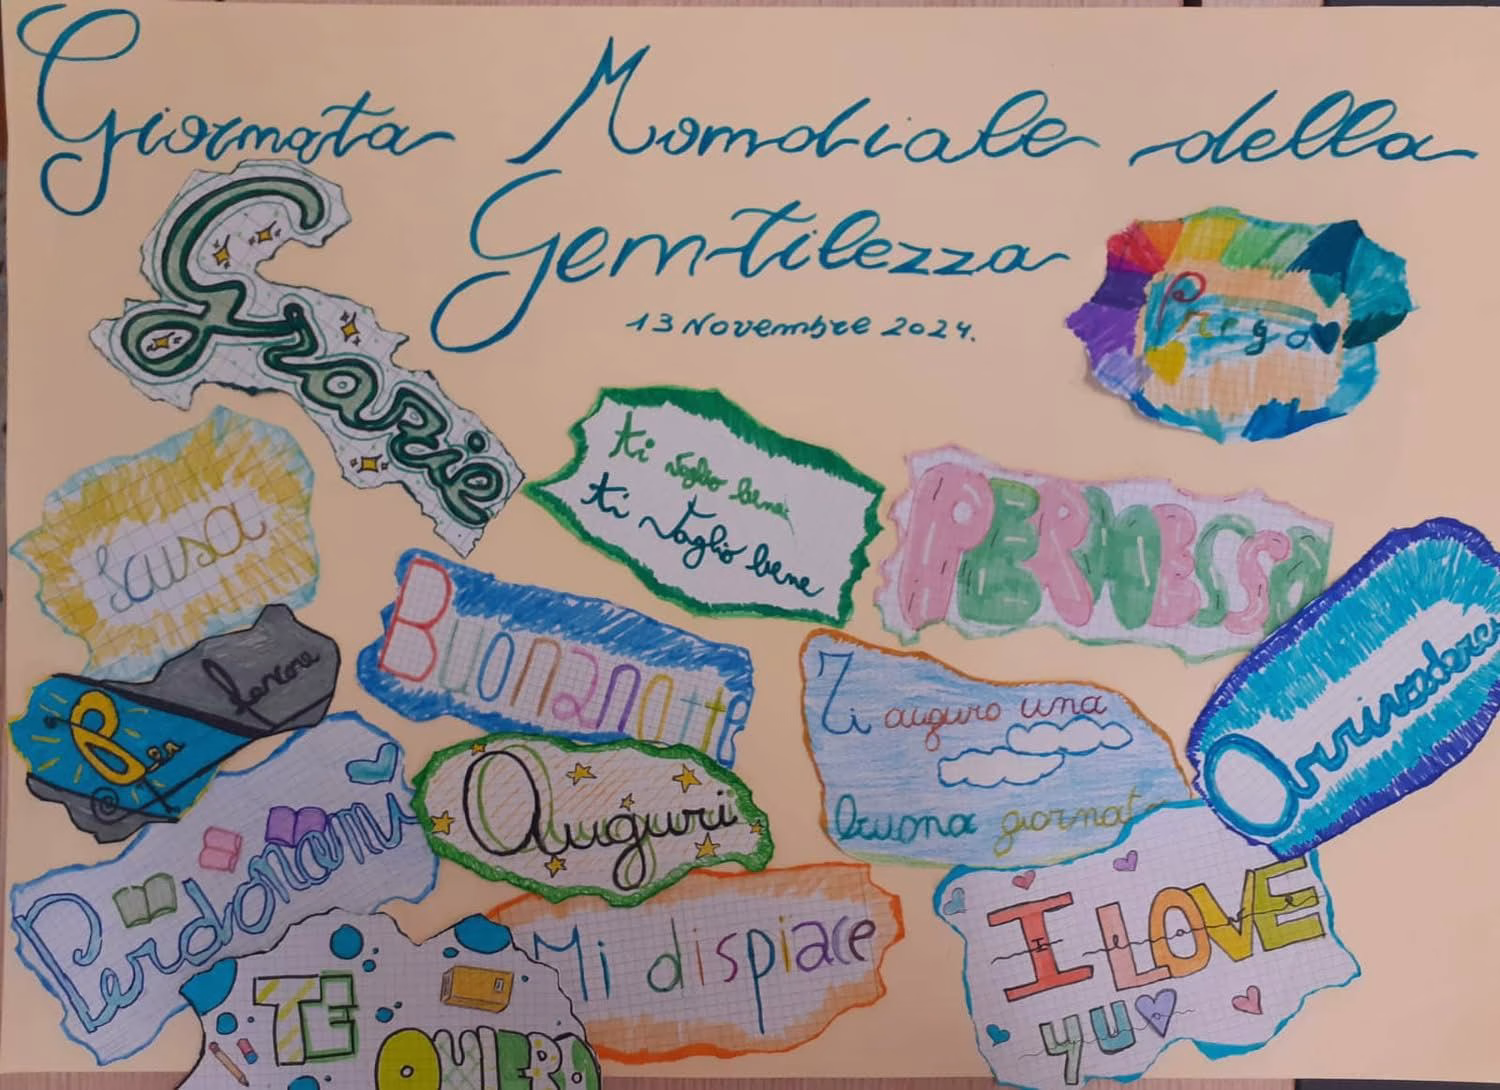 Giornata Mondiale della
Gentilezza
13 Novembre 2024.
Grazie
Prego
ti voglio bene
ti voglio bene
PERMESSO
Scusa
Buonanotte
Ti auguro una
buona giornat
Arrivederci
Per
favore
Auguri
Perdonami
Mi dispiace
I LOVE
yu
TE
QUIERO